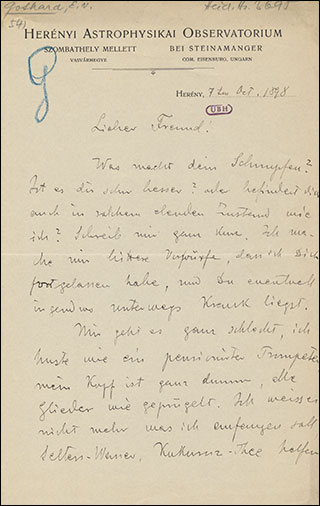 Gothard, E.v.
Heid. Hs.
54)
HERÉNYI ASTROPHYSIKAI OBSERVATORIUM
SZOMBATHELY MELLETT
VASVÁRMEGYE
BEI STEINAMANGER
COM. EISENBURG, UNGARN
HERÉNY, 7ten Oct. 1898
UBH
Lieber Freund!
Was macht dein Schnupfen?
Ist es dir schon besser? oder befindest dich
auch in solchem elenden Zustand wie
ich? Schreib mir ganz kurz. Ich ma-
che mir bittere Vorwürfe, dass ich Dich
fortgelassen habe, und Du eventuell
irgendwo unterwegs krank liegst.
Mir geht es ganz schlecht, ich
huste wie ein pensionirter Trompeter
mein Kopf ist ganz dumm, alle
Glieder wie geprügelt. Ich weiss
nicht mehr was ich anfangen soll
Selters-Wasser, Kukuruz-Thee helfen